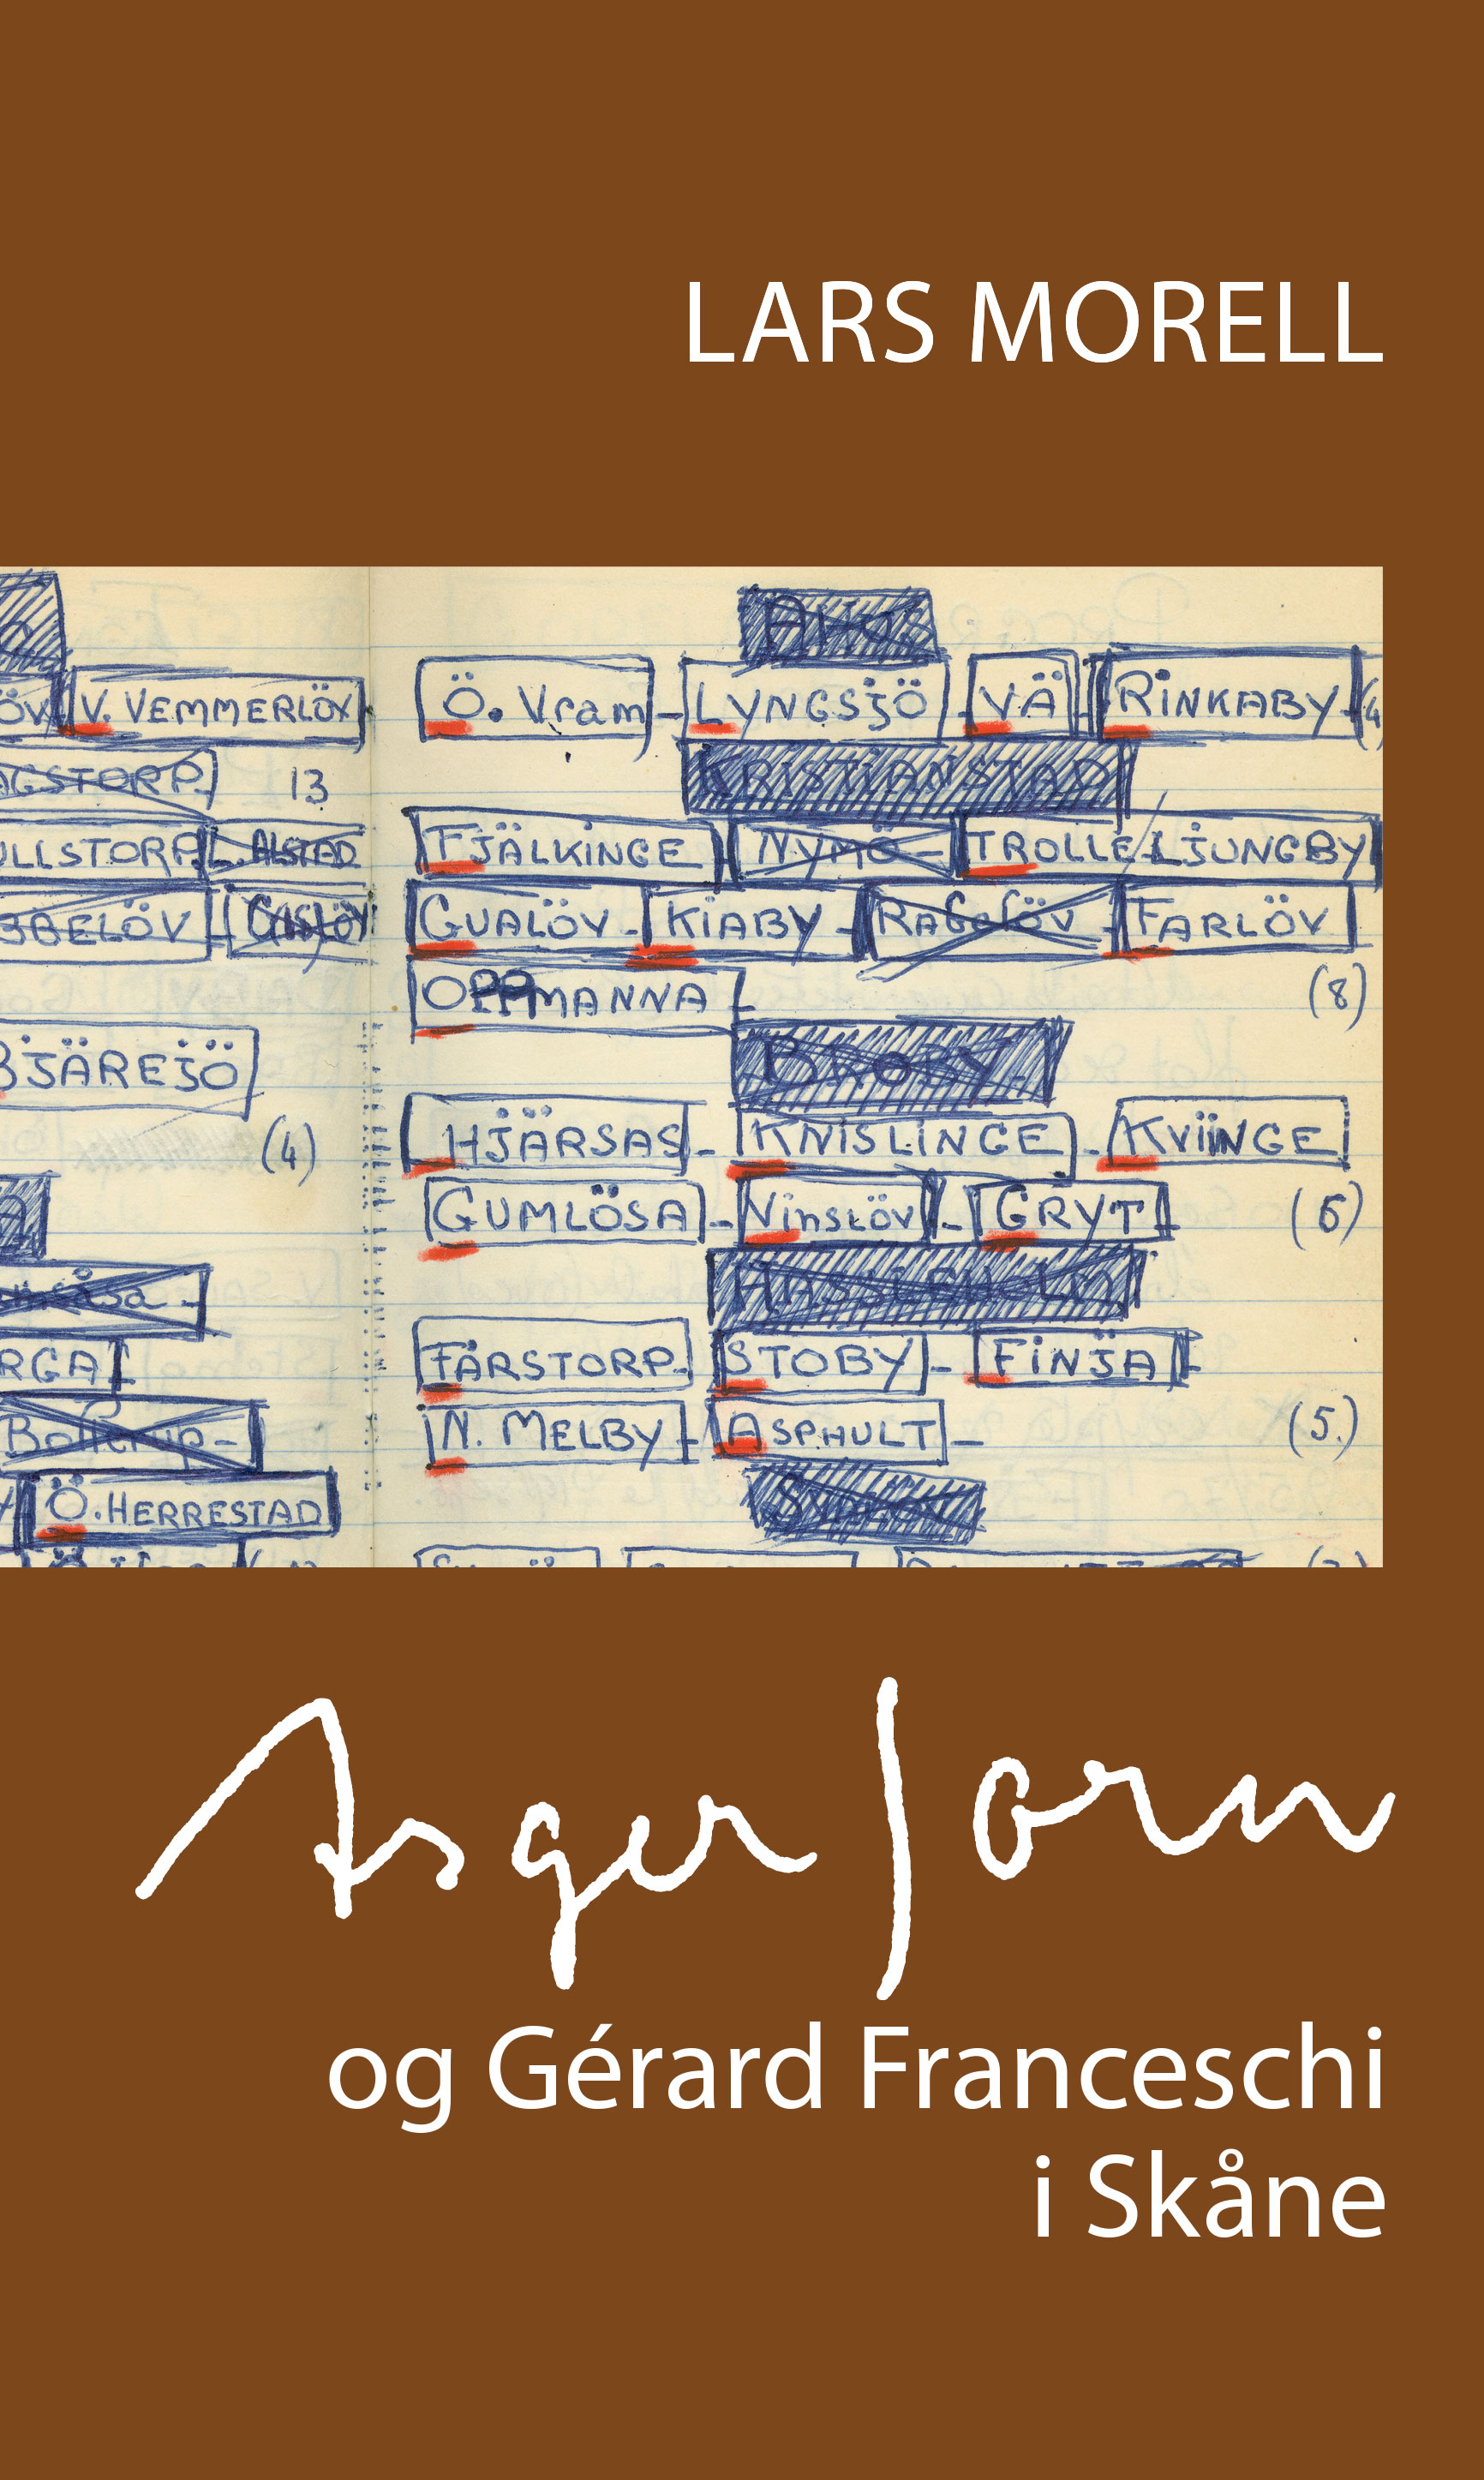 LARS MORELL
ÅHUS
ÖV V. VEMMERLÖV
Ö. Vram - LYNGSJÖ - VÄ - RINKABY - (4)
AGSTORP. 13
KRISTIANSTAD
ULLSTORP. L. ALSTAD
FJÄLKINGE - NYMÖ - TROLLE LJUNGBY
BBELÖV -
GUALÖV - KIABY - RAGELÖV - FARLÖV
OPPMANNA - (8)
BJÄREJÖ
BROBY
(4)
HJÄRSAS - KNISLINGE - KVIINGE
A
GUMLÖSA - Vinslöv - GRYT (6)
HASSLEHOLM
RGA
FÄRSTORP - STOBY - FINJA
N. MELBY - ASPHULT - (5.)
Ö. HERRESTAD
Asger Jorn
og Gérard Franceschi
i Skåne